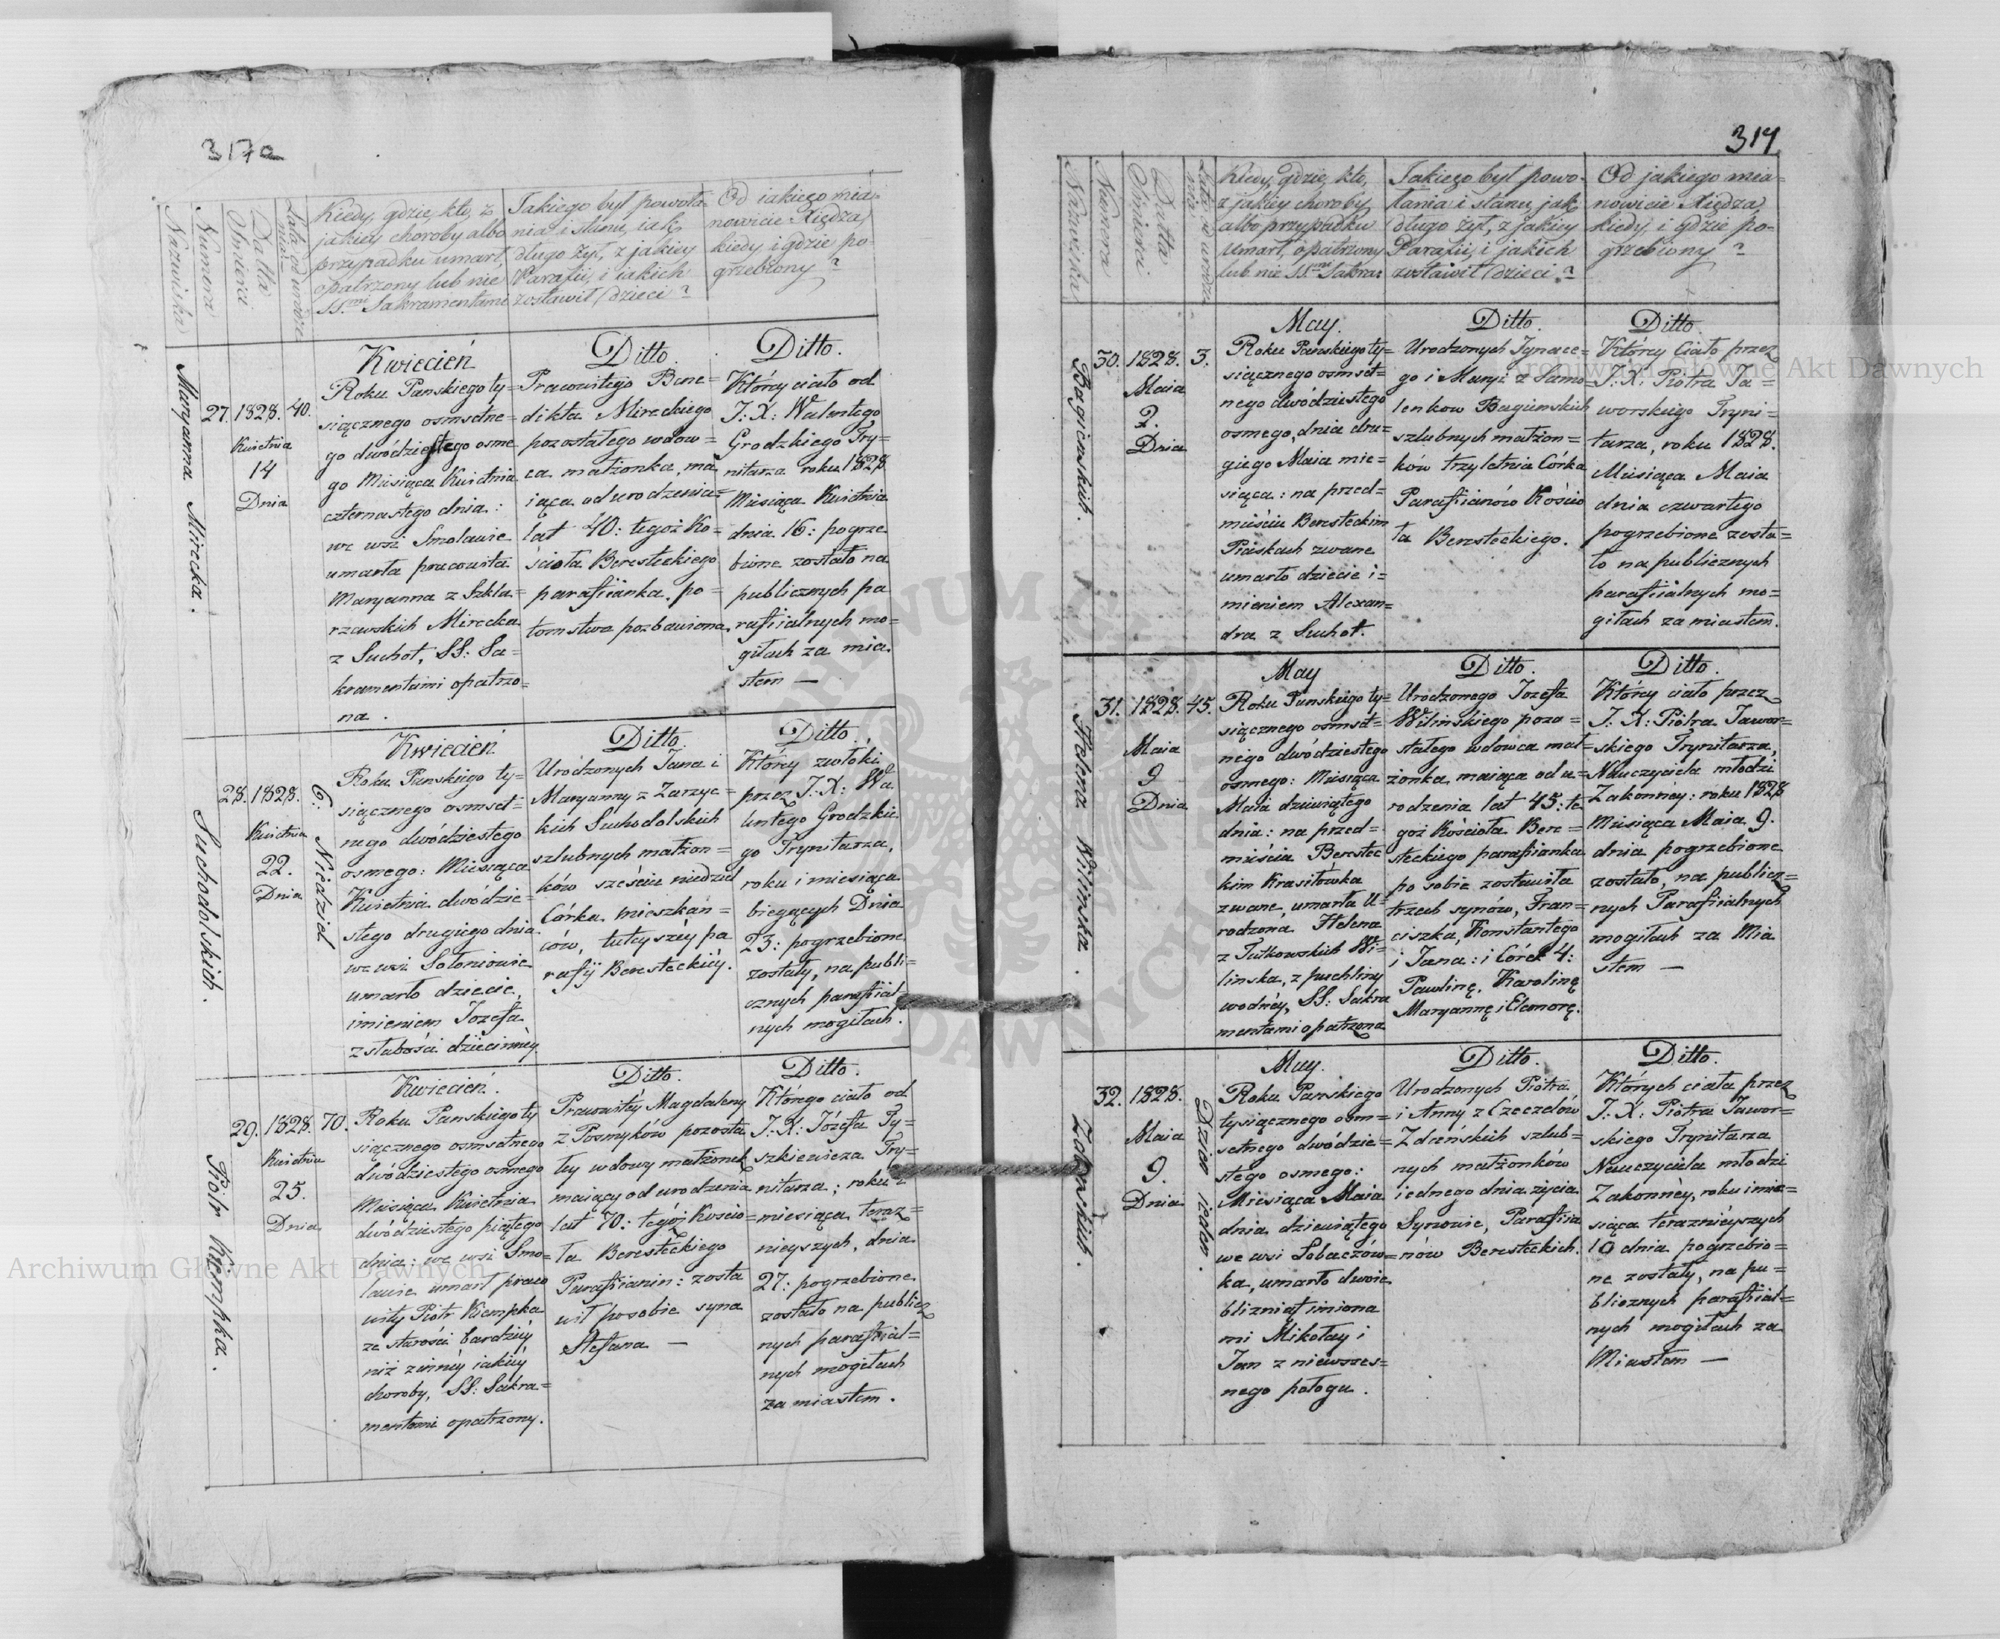 317a
Nazwiska
Numera
Datta Śmierci
Lata od urodzenia
Kiedy, gdzie, kto, z
jakiey choroby albo
przypadku umarł,
opatrzony lub nie
SS.mi Sakramentami
Jakiego był powoła-
nia i stanu, jak
długo żył, z jakiey
Parafii, i jakich
zostawił dzieci?
Od jakiego mia-
nowicie Xiędza,
kiedy i gdzie po-
grzebiony?
Maryanna Mirecka.
27.
1828.
Kwietnia
14
Dnia
40.
Kwiecień
Roku Panskiego ty=
siącznego osmsetne=
go dwódziestego osme
go Miesiąca Kwietnia
czternastego dnia:
we wsi Smolawie
umarła pracowita
Maryanna z Szkla=
rzewskich Mirecka
z Suchot, SS: Sa=
kramentami opatrzo=
na.
Ditto.
Pracowitego Bene=
dikta Mireckiego
pozostałego wdow=
ca małżonka, ma
iąca od urodzenia=
lat 40: tegoż Ko=
ścioła Beresteckiego
parafiianka. po=
tomstwa pozbawiona.
Ditto.
Którey ciało od
J: X: Walentego
Grodzkiego Try=
nitarza roku 1828
Miesiąca Kwietnia
dnia 16: pogrze
bione zostało na
publicznych pa
rafiialnych mo=
giłach za mia.
stem —
Suchodolskich.
28.
1828.
Kwietnia
22.
Dnia
6: Niedziel
Kwiecień
Roku Panskiego ty=
siącznego osmset=
nego dwódziestego
osmego: Miesiąca
Kwietnia dwódzie=
stego drugiego dnia
we wsi Sołoniowie
umarło dziecie,
imieniem Jozefa
z słabości dziecinnéy.
Ditto
Urodzonych Jana i
Maryanny z Zarzyc=
kich Suchodolskich
szlubnych małżon=
ków sześciu niedziel
Córka mieszkań=
ców, tuteyszéy pa
rafij Beresteckiéy.
Ditto.
Którey zwłoki
przez J: X: Wa
lentego Grodzkie
go Trynitarza,
roku i miesiąca
biegących Dnia
23: pogrzebione
zostały, na publi=
cznych parafial=
nych mogiłach.
Piotr Kiempka.
29.
1828.
Kwietnia
25.
Dnia
70.
Kwiecień.
Roku Panskiego ty
siącznego osmsetnego
dwódziestego osmego
Miesiąca Kwietnia
dwódziestego piątego
dnia: we wsi Smo=
lawie umarł praco
wity Piotr Kiempka
ze starości bardziéy
niż z innéy iakiéy
choroby, SS: Sakra=
mentami opatrzony.
Ditto.
Pracowitéy Magdaleny
z Posmyków pozosta
łey wdowy małżonek
maiący od urodzenia
lat 70: tegóż Koscio=
ła Beresteckiego
Parafiianin: zosta
wił po sobie syna
Stefana —
Ditto.
Którego ciało od
J: X: Józefa Ty=
szkiewicza Try=
nitarza; roku i
miesiąca teraz=
nieyszych, dnia
27: pogrzebione
zostało na publicz
nych parafial=
nych mogiłach
za miastem.
317
Nazwiska
Numera
Datta Śmierci
Lata od urodzenia
Kiedy, gdzie, kto,
z jakiey choroby
albo przypadku
umarł, opatrzony
lub nie SS.mi Sakra:
Jakiego był powo-
łania i stanu, jak
długo żył, z jakiey
Parafii, i jakich
zostawił dzieci?
Od jakiego mia-
nowicie Xiędza
kiedy, i gdzie po-
grzebiony?
Bagieńskich.
30.
1828.
Maia
2.
Dnia
3.
May.
Roku Panskiego ty=
siącznego osmset=
nego dwódziestego
osmego, dnia dru=
giego Maia mie=
siąca: na przed=
mieściu Beresteckim
Piaskach zwane
umarło dziecie i=
mieniem Alexan=
dra z Suchot.
Ditto.
Urodzonych Ignace=
go i Maryi z Samo=
lenkow Bagienskich
szlubnych małżon=
ków trzyletnia Córka
Parafiianów Koscio
ła Beresteckiego.
Ditto.
Którey Ciało przez
J: X: Piotra Ja=
worskiego Tryni=
tarza, roku 1828.
Miesiąca Maia
dnia czwartego
pogrzebione zosta=
ło na publicznych
parafiialnych mo=
giłach za miastem.
Helena Wilinska.
31.
1828.
Maia
9
Dnia
45.
May
Roku Panskiego ty=
siącznego osmset=
nego dwódziestego
osmego: Miesiąca
Maia dziewiątego
dnia: na przed=
mieścia Berestec
kim Krasiłowka
zwane, umarła U=
rodzona Helena
z Tutkowskich Wi=
linska, z puchliny
wodnéy, SS: Sakra
mentami opatrzona
Ditto.
Urodzonego Jozefa
Wilinskiego pozo=
stałego wdowca mał=
żonka, maiąca od u=
rodzenia lat 45: te
goż Kościoła Bere=
steckiego parafiianka
po sobie zostawiła
trzech synów, Fran=
ciszka, Konstantego
i Jana: i Córek 4:
Paulinę, Karolinę
Maryannę i Eleonorę.
Ditto.
Którey ciało przez
J: X: Piotra Jawor=
skiego Trynitarza,
Nauczyciela młodzi
Zakonney: roku 1828
Miesiąca Maia 9.
dnia pogrzebione
zostało, na publicz=
nych Parafiialnych
mogiłach za Mia
stem —
Zdzenskich.
32.
1828.
Maia
9.
Dnia
Dzień ieden.
May.
Roku Panskiego
tysiącznego osm=
setnego dwódzie=
stego osmego:
Miesiąca Maia
dnia dziewiątego
we wsi Sobaczów=
ka, umarło dwoie
blizniąt imiona
mi Mikołay i
Jan z niewszes=
nego połogu.
Ditto.
Urodzonych Piotra
i Anny z Czeczelów
Zdzeńskich szlub=
nych małżonków
iednego dnia życia
Synowie, Parafiia
nów Beresteckich.
Ditto.
Których ciała przez
J: X: Piotra Jawor=
skiego Trynitarza
Nauczyciela młodzi
Zakonnéy, roku i mie=
siąca teraznieyszych
10 dnia pogrzebio=
ne zostały, na pu=
blicznych parafial=
nych mogiłach za
Miastem —
Archiwum Główne Akt Dawnych
Archiwum Główne Akt Dawnych